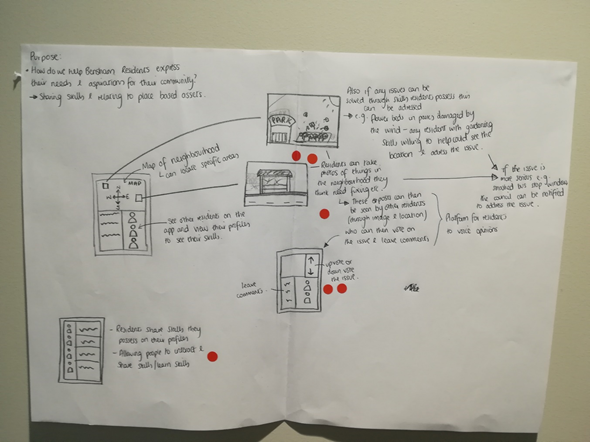 Purpose:
• How do we help Bensham Residents express
their needs & aspirations for their community?
→ Sharing skills & relating to place based assets.
Map of neighbourhood
↳ can locate specific areas
MAP
N
W E
S
See other residents on the
app and view their profiles
to see their skills.
PARK
Residents can take
photos of things in
the neighbourhood they
think need fixing etc.
Also if any issues can be
solved through skills residents possess this
can be adressed
→ e.g. flower beds in parks damaged by
the wind - any resident with gardening
skills willing to help could see the
location & adress the issue.
If the issue is
more serious e.g.
smashed bus stop windows
the council can be notified
to address the issue.
→ These photos can then
be seen by other residents
(through image & location)
who can then vote on
the issue & leave comments
Platform for residents
to voice opinions
upvote or
down vote
the issue.
leave
comments
- Residents share skills they
possess on their profiles
- Allowing people to interact &
share skills/learn skills